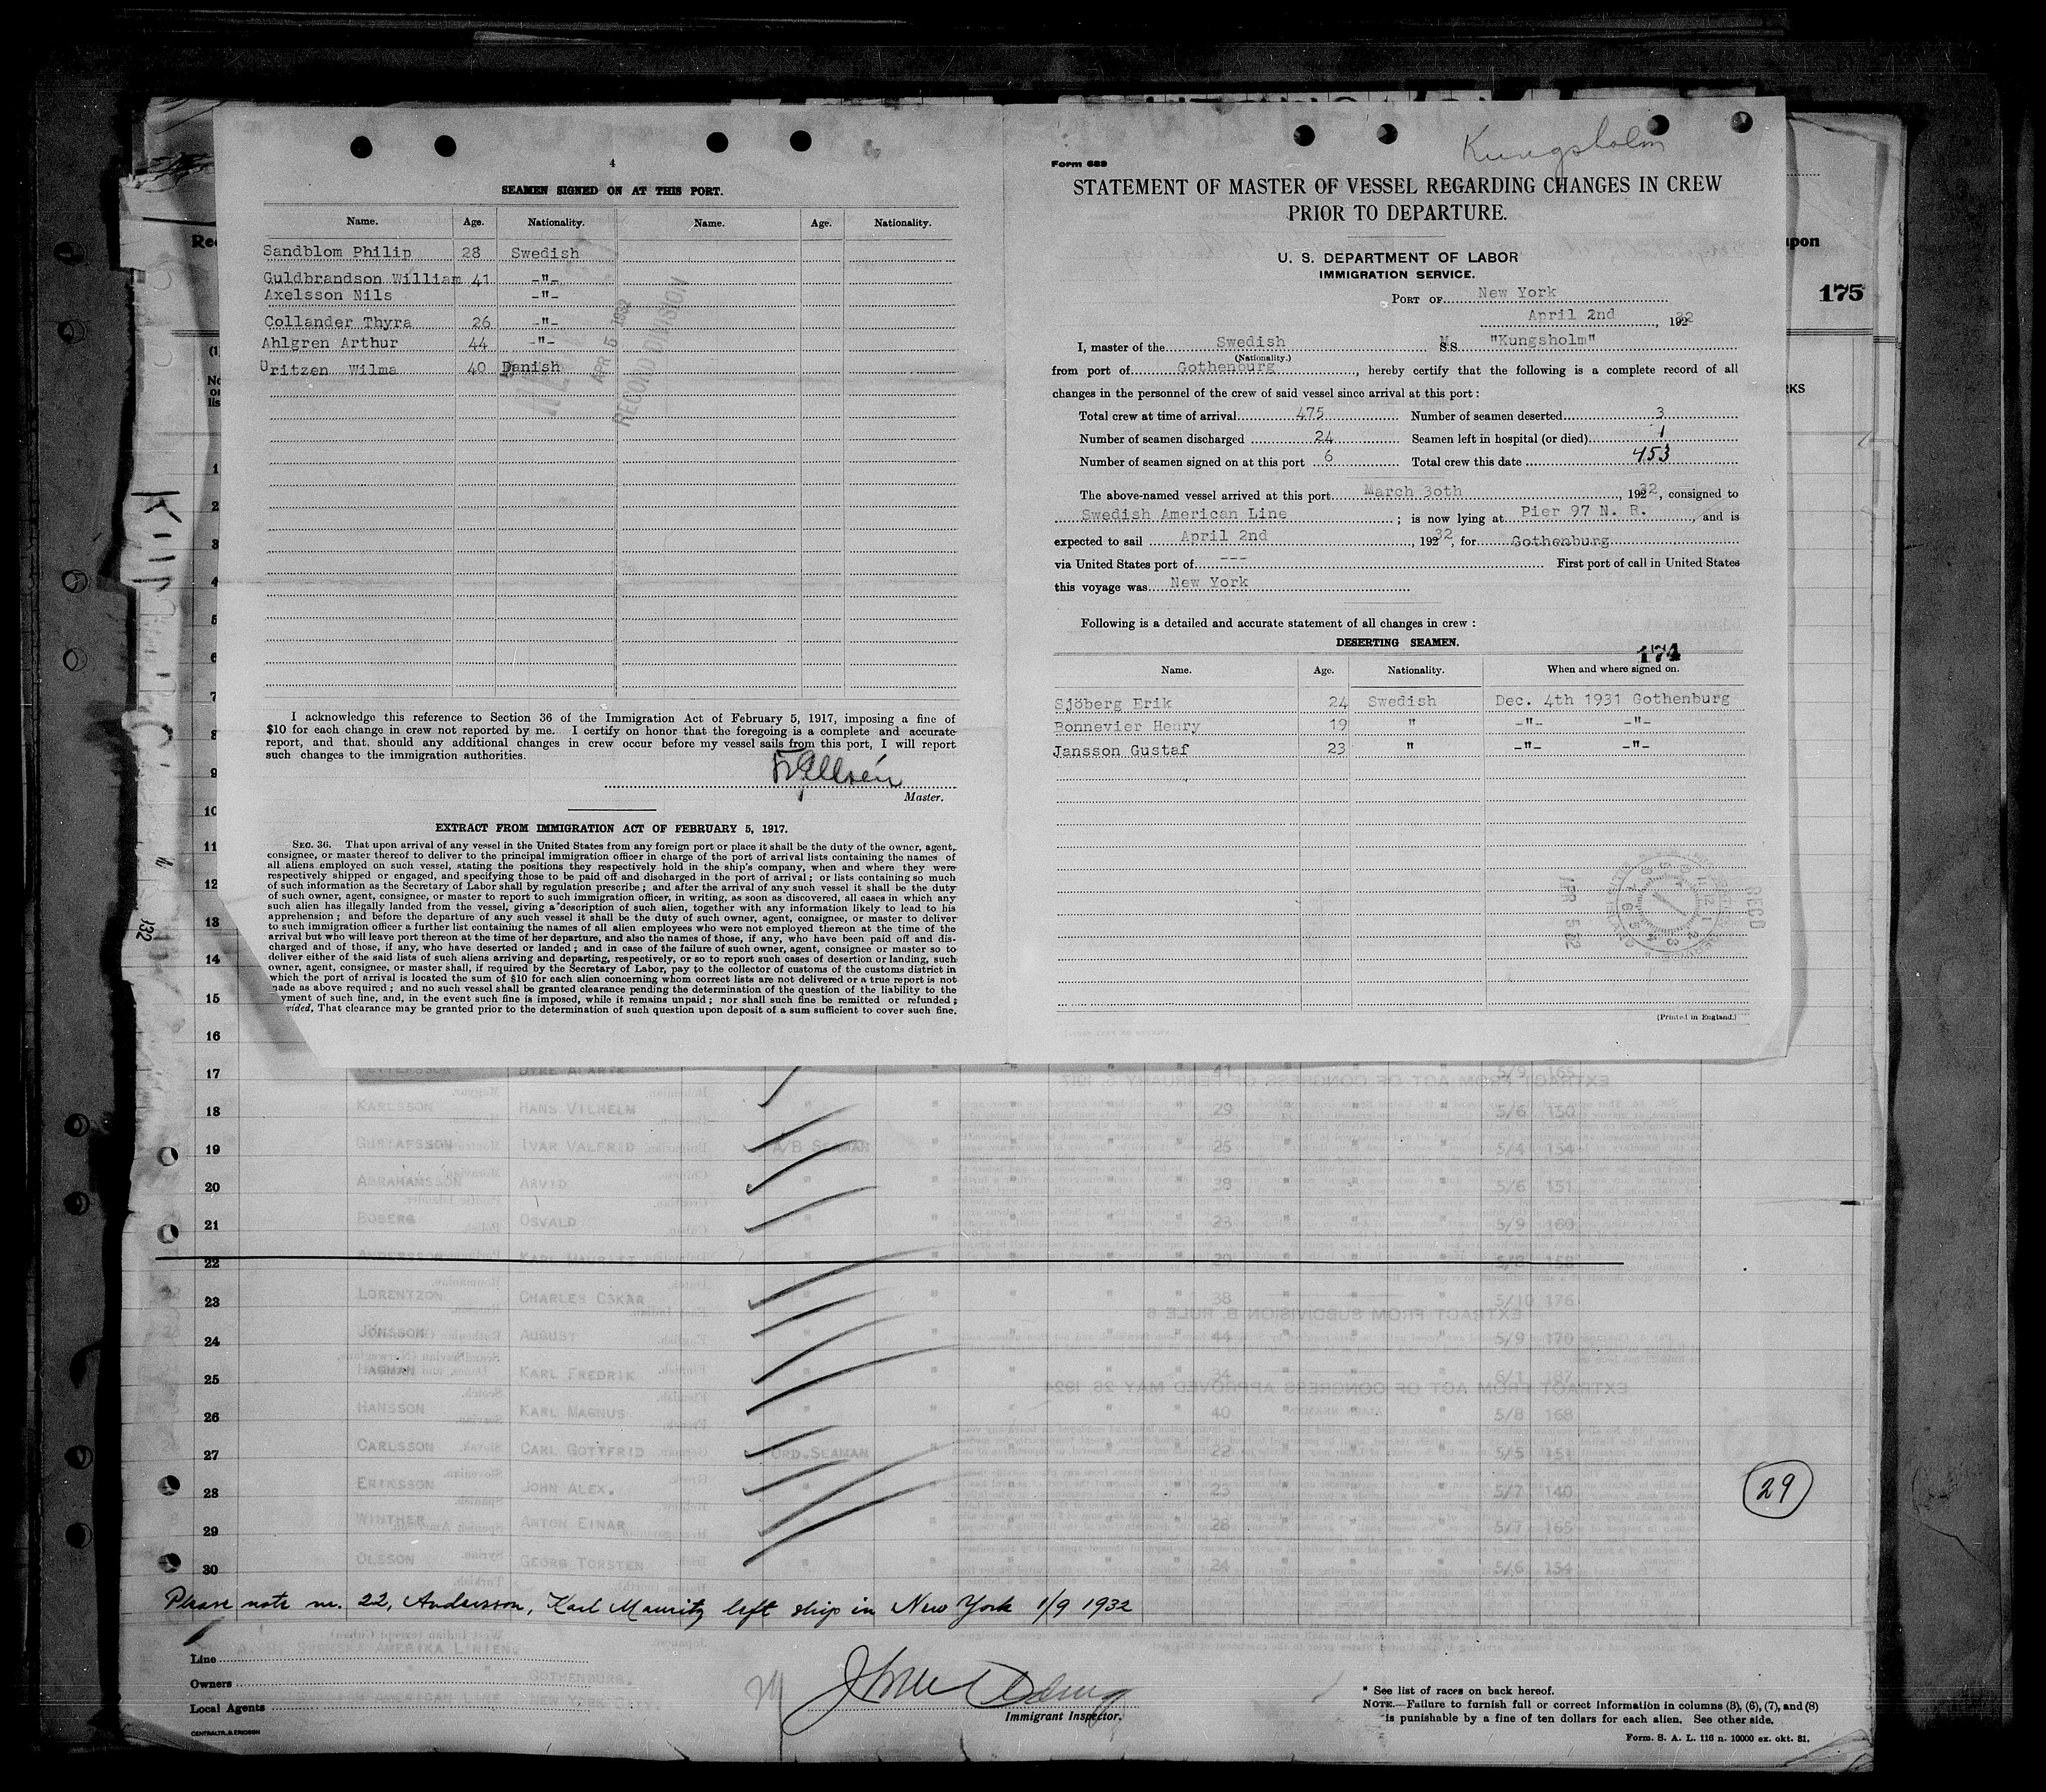 4
SEAMEN SIGNED ON AT THIS PORT.
Name. Age. Nationality. Name. Age. Nationality.
Sandblom Philip 28 Swedish
Guldbrandson William 41 -"-
Axelsson Nils -"-
Collander Thyra 26 -"-
Ahlgren Arthur 44 -"-
Uritzen Wilma 40 Danish
APR 5 1932
RECORD DIVISION
I acknowledge this reference to Section 36 of the Immigration Act of February 5, 1917, imposing a fine of
$10 for each change in crew not reported by me. I certify on honor that the foregoing is a complete and accurate
report, and that, should any additional changes in crew occur before my vessel sails from this port, I will report
such changes to the immigration authorities.
Master.
EXTRACT FROM IMMIGRATION ACT OF FEBRUARY 5, 1917.
SEC. 36. That upon arrival of any vessel in the United States from any foreign port or place it shall be the duty of the owner, agent,
consignee, or master thereof to deliver to the principal immigration officer in charge of the port of arrival lists containing the names of
all aliens employed on such vessel, stating the positions they respectively hold in the ship's company, when and where they were
respectively shipped or engaged, and specifying those to be paid off and discharged in the port of arrival; or lists containing so much
of such information as the Secretary of Labor shall by regulation prescribe; and after the arrival of any such vessel it shall be the duty
of such owner, agent, consignee, or master to report to such immigration officer, in writing, as soon as discovered, all cases in which any
such alien has illegally landed from the vessel, giving a description of such alien, together with any information likely to lead to his
apprehension; and before the departure of any such vessel it shall be the duty of such owner, agent, consignee, or master to deliver
to such immigration officer a further list containing the names of all alien employees who were not employed thereon at the time of the
arrival but who will leave port thereon at the time of her departure, and also the names of those, if any, who have been paid off and dis-
charged and of those, if any, who have deserted or landed; and in case of the failure of such owner, agent, consignee or master so to
deliver either of the said lists of such aliens arriving and departing, respectively, or so to report such cases of desertion or landing, such
owner, agent, consignee, or master shall, if required by the Secretary of Labor, pay to the collector of customs of the customs district in
which the port of arrival is located the sum of $10 for each alien concerning whom correct lists are not delivered or a true report is not
made as above required; and no such vessel shall be granted clearance pending the determination of the question of the liability to the
yment of such fine, and, in the event such fine is imposed, while it remains unpaid; nor shall such fine be remitted or refunded;
vided, That clearance may be granted prior to the determination of such question upon deposit of a sum sufficient to cover such fine.
Kungsholm
Form 689
STATEMENT OF MASTER OF VESSEL REGARDING CHANGES IN CREW
PRIOR TO DEPARTURE.
U. S. DEPARTMENT OF LABOR
IMMIGRATION SERVICE.
PORT OF New York
April 2nd, 1932
I, master of the Swedish M S.S. "Kungsholm"
(Nationality.)
from port of Gothenburg, hereby certify that the following is a complete record of all
changes in the personnel of the crew of said vessel since arrival at this port:
Total crew at time of arrival 475 Number of seamen deserted 3
Number of seamen discharged 24 Seamen left in hospital (or died) 1
Number of seamen signed on at this port 6 Total crew this date 453
The above-named vessel arrived at this port March 30th, 1932, consigned to
Swedish American Line; is now lying at Pier 97 N. R., and is
expected to sail April 2nd, 1932, for Gothenburg
via United States port of --- First port of call in United States
this voyage was New York
Following is a detailed and accurate statement of all changes in crew:
DESERTING SEAMEN.
174
Name. Age. Nationality. When and where signed on.
Sjöberg Erik 24 Swedish Dec. 4th 1931 Gothenburg
Bonnevier Henry 19 " -"- -"-
Jansson Gustaf 23 " -"- -"-
RECD
APR 5 32
(Printed in England.)
upon
175
RKS
1
2
3
4
5
6
7
8
9
10
11
12
13
14
15
16
17 DYRE ALARIK 41 5/9 165
18 KARLSSON HANS VILHELM " 29 5/6 150
19 GUSTAFSSON IVAR VALFRID A/B SEAMAN 25 5/4 154
20 ABRAHAMSSON ARVID 38 5/6 151
21 BOBERG OSVALD 23 5/9 160
22 ANDERSSON KARL MAURITZ 5/8 158
23 LORENTZON CHARLES OSKAR 38 5/10 176
24 JÖNSSON AUGUST 44 5/9 170
25 HAGMAN KARL FREDRIK 34 6/1 187
26 HANSSON KARL MAGNUS 40 5/8 168
27 CARLSSON CARL GOTTFRID ORD.SEAMAN 22 5/5 151
28 ERIKSSON JOHN ALEX. 23 5/7 140
29 WINTHER ANTON EINAR 28 5/7 165
30 OLSSON GEORG TORSTEN 24 5/6 154
29
Please note nr. 22, Andersson, Karl Mauritz left ship in New York 1/9 1932
Line A. B. SVENSKA AMERIKA LINIEN.
Owners " " GOTHENBURG.
Local Agents AMERICAN LINE NEW YORK CITY.
CENTRALTR. G. ERICSON
Immigrant Inspector.
* See list of races on back hereof.
NOTE.—Failure to furnish full or correct information in columns (3), (6), (7), and (8)
is punishable by a fine of ten dollars for each alien. See other side.
Form. S. A. L. 116 n. 10000 ex. okt. 31.